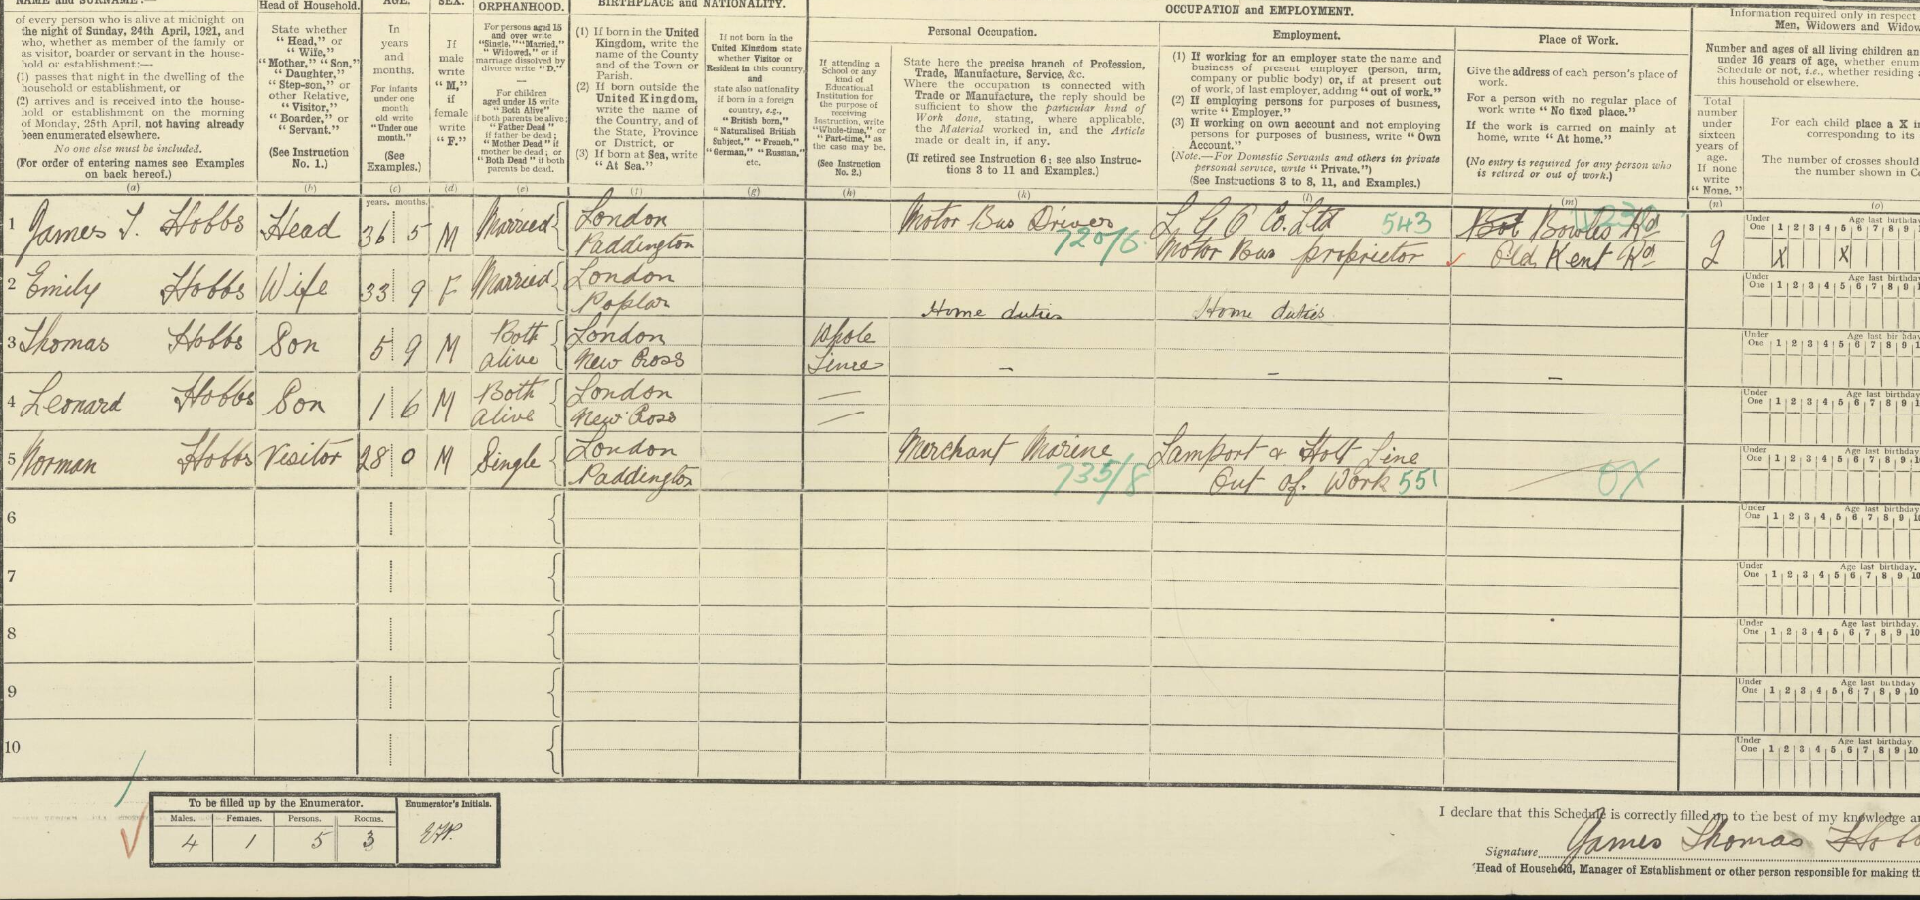 NAME and SURNAME:—
of every person who is alive at midnight on
the night of Sunday, 24th April, 1921, and
who, whether as member of the family or
as visitor, boarder or servant in the house-
hold or establishment:—
(1) passes that night in the dwelling of the
household or establishment, or
(2) arrives and is received into the house-
hold or establishment on the morning
of Monday, 25th April, not having already
been enumerated elsewhere.
No one else must be included.
(For order of entering names see Examples
on back hereof.)
(a)
Head of Household.
State whether
“Head,” or
“Wife,”
“Mother,” “Son,”
“Daughter,”
“Step-son,” or
other Relative,
“Visitor,”
“Boarder,” or
“Servant.”
(See Instruction
No. 1.)
(b)
AGE.
In
years
and
months.
For infants
under one
month
old write
“Under one
month.”
(See
Examples.)
(c)
years. months.
SEX.
If
male
write
“M,”
if
female
write
“F.”
(d)
ORPHANHOOD.
For persons aged 15
and over write
“Single,” “Married,”
“Widowed,” or if
marriage dissolved by
divorce write “D.”
—
For children
aged under 15 write
“Both Alive”
if both parents be alive;
“Father Dead”
if father be dead;
“Mother Dead” if
mother be dead; or
“Both Dead” if both
parents be dead.
(e)
BIRTHPLACE and NATIONALITY.
(1) If born in the United
Kingdom, write the
name of the County
and of the Town or
Parish.
(2) If born outside the
United Kingdom,
write the name of
the Country, and of
the State, Province
or District, or
(3) If born at Sea, write
“At Sea.”
(f)
If not born in the
United Kingdom state
whether Visitor or
Resident in this country,
and
state also nationality
if born in a foreign
country, e.g.,
“British born,”
“Naturalised British
Subject,” “French,”
“German,” “Russian,”
etc.
(g)
If attending a
School or any
kind of
Educational
Institution for
the purpose of
receiving
Instruction, write
“Whole-time,” or
“Part-time,” as
the case may be.
(See Instruction
No. 2.)
(h)
OCCUPATION and EMPLOYMENT.
Personal Occupation.
State here the precise branch of Profession,
Trade, Manufacture, Service, &c.
Where the occupation is connected with
Trade or Manufacture, the reply should be
sufficient to show the particular kind of
Work done, stating, where applicable,
the Material worked in, and the Article
made or dealt in, if any.
(If retired see Instruction 6; see also Instruc-
tions 3 to 11 and Examples.)
(k)
Employment.
(1) If working for an employer state the name and
business of present employer (person, firm,
company or public body) or, if at present out
of work, of last employer, adding “out of work.”
(2) If employing persons for purposes of business,
write “Employer.”
(3) If working on own account and not employing
persons for purposes of business, write “Own
Account.”
(Note.—For Domestic Servants and others in private
personal service, write “Private.”)
(See Instructions 3 to 8, 11, and Examples.)
(l)
Place of Work.
Give the address of each person's place of
work.
For a person with no regular place of
work write “No fixed place.”
If the work is carried on mainly at
home, write “At home.”
(No entry is required for any person who
is retired or out of work.)
(m)
Information required only in respect
Men, Widowers and Widow
Number and ages of all living children an
under 16 years of age, whether enum
Schedule or not, i.e., whether residing
this household or elsewhere.
Total
number
under
sixteen
years of
age.
If none
write
“None.”
(n)
For each child place a X in
corresponding to its
The number of crosses should
the number shown in Co
(o)
1 James T. Hobbs Head 36 5 M Married London Paddington Motor Bus Driver 720/6 L G O Co. Ltd 543 Motor Bus proprietor Bowles Rd Old Kent Rd 2
Under One Age last birthday 1 2 3 4 5 6 7 8 9 1
X X
2 Emily Hobbs Wife 33 9 F Married London Poplar Home duties Home duties
Under One Age last birthday 1 2 3 4 5 6 7 8 9 1
3 Thomas Hobbs Son 5 9 M Both alive London New Cross Whole Time – – –
Under One Age last birthday 1 2 3 4 5 6 7 8 9 1
4 Leonard Hobbs Son 1 6 M Both alive London New Cross
Under One Age last birthday 1 2 3 4 5 6 7 8 9 1
5 Norman Hobbs Visitor 28 0 M Single London Paddington Merchant Marine 735/8 Lamport & Holt Line Out of Work 551 OX
Under One Age last birthday 1 2 3 4 5 6 7 8 9 1
6
Under One Age last birthday 1 2 3 4 5 6 7 8 9 10
7
Under One Age last birthday. 1 2 3 4 5 6 7 8 9 10
8
Under One Age last birthday. 1 2 3 4 5 6 7 8 9 10
9
Under One Age last birthday 1 2 3 4 5 6 7 8 9 10
10
Under One Age last birthday 1 2 3 4 5 6 7 8 9 10
To be filled up by the Enumerator. Enumerator's Initials.
Males. Females. Persons. Rooms.
4 1 5 3
I declare that this Schedule is correctly filled up to the best of my knowledge an
Signature James Thomas Hobb
Head of Household, Manager of Establishment or other person responsible for making th